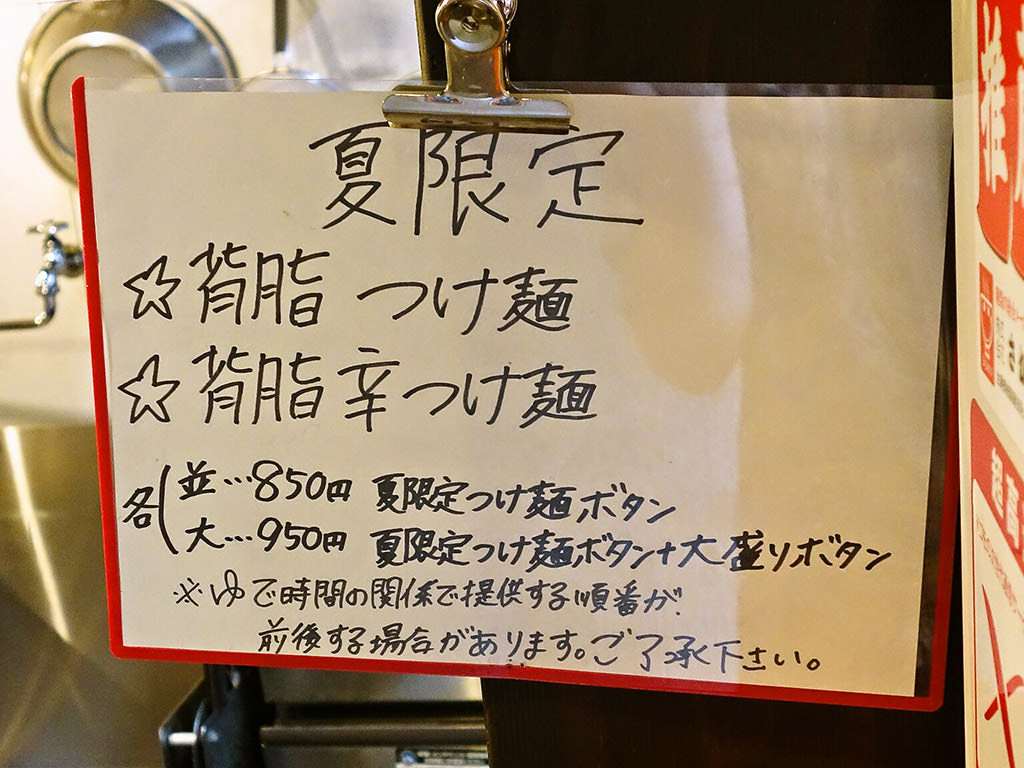 夏限定
☆背脂 つけ麺
☆背脂辛つけ麺
各(並…850円 夏限定つけ麺ボタン
大…950円 夏限定つけ麺ボタン+大盛りボタン
※ゆで時間の関係で提供する順番が
前後する場合があります。ご了承下さい。
推